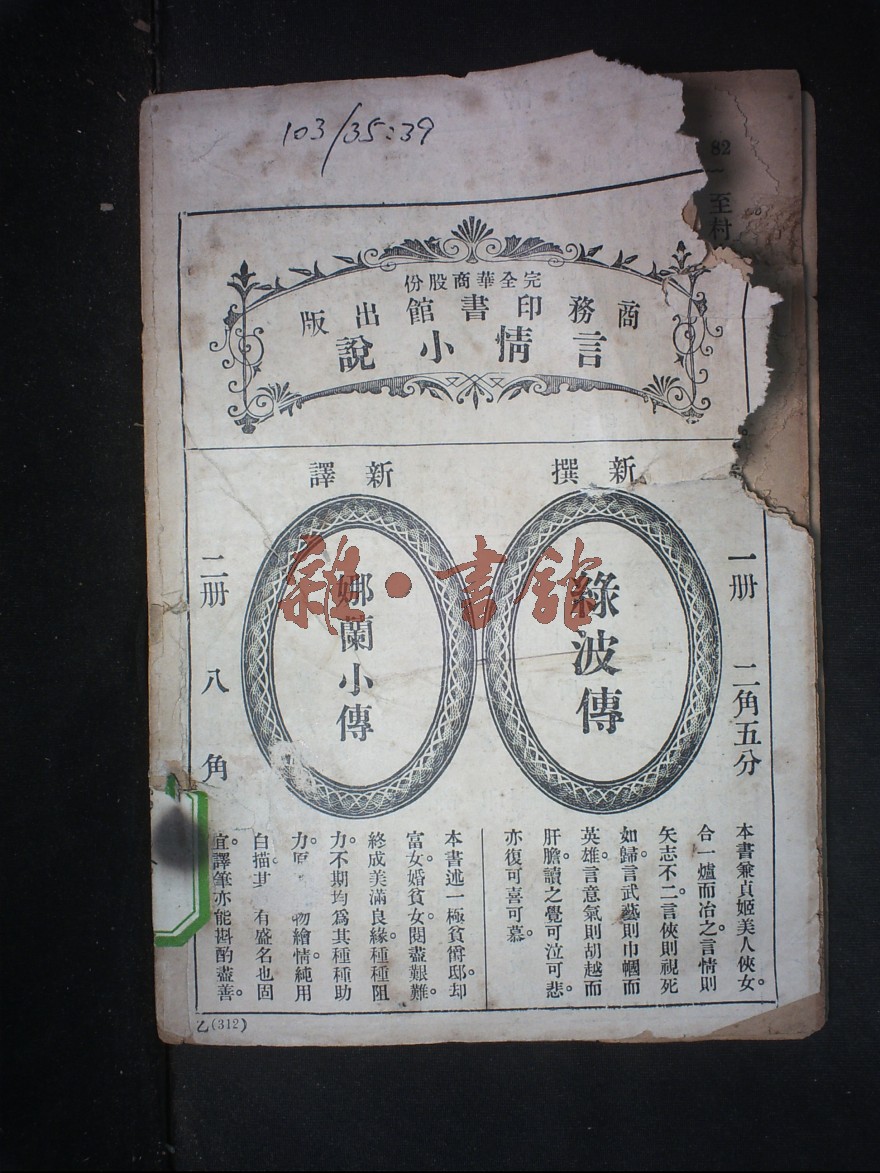 103/35:39
82
至村
完全華商股份
商務印書館出版
言情小說
新撰
綠波傳
一册 二角五分
本書兼貞姬美人俠女。
合一爐而冶之。言情則
矢志不二。言俠則視死
如歸。言武藝則巾幗而
英雄。言意氣則胡越而
肝膽。讀之覺可泣可悲。
亦復可喜可慕。
新譯
娜蘭小傳
二册 八角
本書述一極貧爵邸。却
富女婚貧女。閱盡艱難。
終成美滿良緣。種種阻
力。不期均爲其種種助
力。物繪情。純用
白描。有盛名也固
宜。譯筆亦能斟酌盡善。
乙(312)
雜·書館